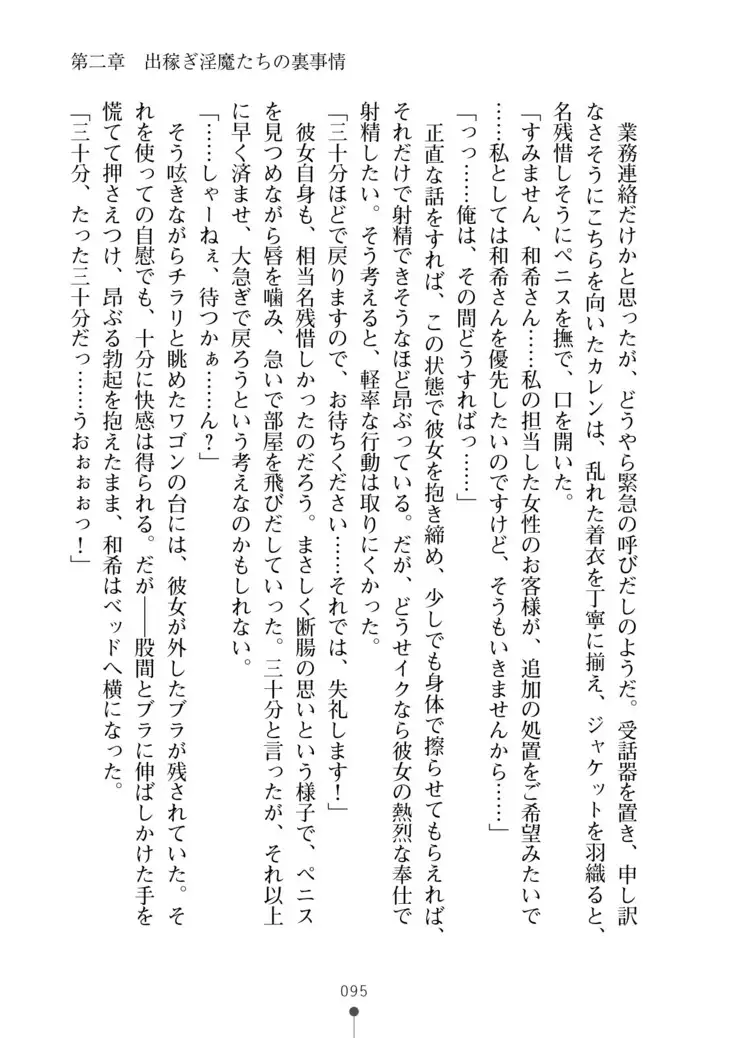 第二章　出稼ぎ淫魔たちの裏事情
業務連絡だけかと思ったが、どうやら緊急の呼びだしのようだ。受話器を置き、申し訳
なさそうにこちらを向いたカレンは、乱れた着衣を丁寧に揃え、ジャケットを羽織ると、
名残惜しそうにペニスを撫で、口を開いた。
「すみません、和希さん……私の担当した女性のお客様が、追加の処置をご希望みたいで
……私としては和希さんを優先したいのですけど、そうもいきませんから……」
「っっ……俺は、その間どうすればっ……」
正直な話をすれば、この状態で彼女を抱き締め、少しでも身体で擦らせてもらえれば、
それだけで射精できそうなほど昂ぶっている。だが、どうせイクなら彼女の熱烈な奉仕で
射精したい。そう考えると、軽率な行動は取りにくかった。
「三十分ほどで戻りますので、お待ちください……それでは、失礼します！」
彼女自身も、相当名残惜しかったのだろう。まさしく断腸の思いという様子で、ペニス
を見つめながら唇を噛み、急いで部屋を飛びだしていった。三十分と言ったが、それ以上
に早く済ませ、大急ぎで戻ろうという考えなのかもしれない。
「……しゃーねぇ、待つかぁ……ん？」
そう呟きながらチラリと眺めたワゴンの台には、彼女が外したブラが残されていた。そ
れを使っての自慰でも、十分に快感は得られる。だが――股間とブラに伸ばしかけた手を
慌てて押さえつけ、昂ぶる勃起を抱えたまま、和希はベッドへ横になった。
「三十分、たった三十分だっ……うおぉぉぉっ！」
095